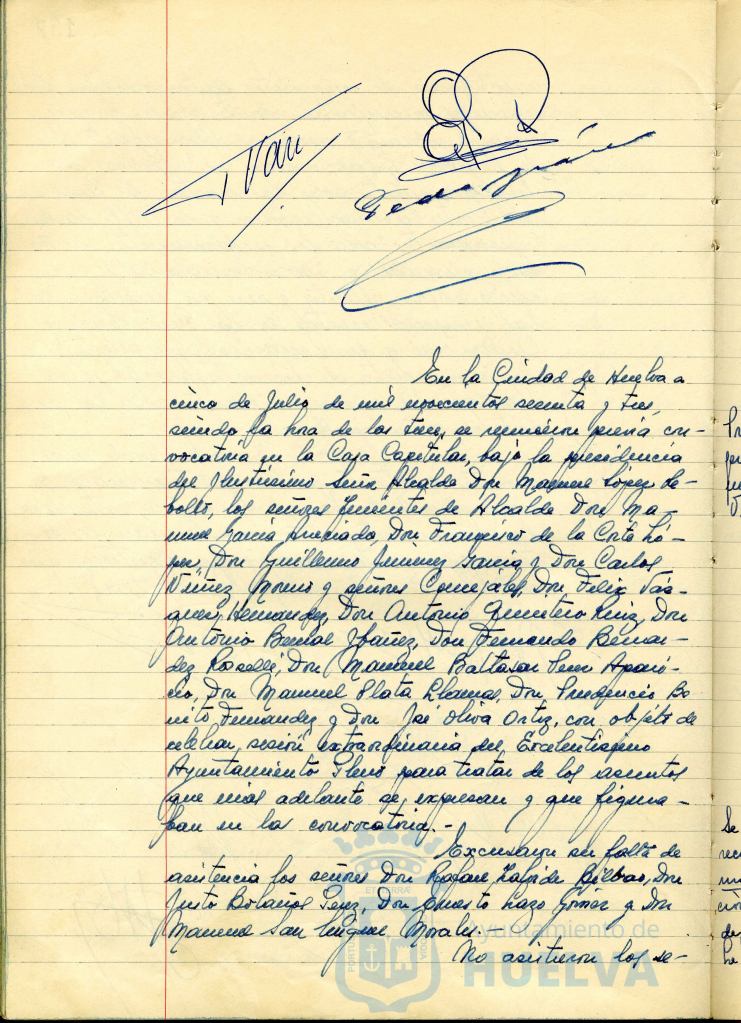 En la Ciudad de Huelva a
cinco de Julio de mil novecientos sesenta y tres,
siendo la hora de las trece, se reunieron previa con-
vocatoria en la Casa Capitular, bajo la presidencia
del Ilustrisimo Señor Alcalde Don Manuel López Re-
bollo, los señores Tenientes de Alcalde Don Ma-
nuel García Anciado, Don Francisco de la Corte Ló-
pez, Don Guillermo Jimenez García y Don Carlos
Núñez Moreno y señores Concejales, Don Felix Vás-
quez Hernandez, Don Antonio Quintero Ruiz, Don
Antonio Bernal Ybañez, Don Fernando Bernan-
dez Roselli, Don Manuel Baltasar Apari-
cio, Don Manuel Plata Llamas, Don Prudencio Be
nito Fernandez y Don José Oliva Ortiz, con objeto de
celebrar sesión extraordinaria del Excelentisimo
Ayuntamiento Pleno para tratar de los asuntos
que más adelante se expresan y que figura-
ban en la convocatoria.-
Excusaron su falta de
asistencia los señores Don Rafael de Bilbao, Don
Justo Bolaños Perez, Don Ernesto Lazo Gómez y Don
Manuel San Miguel Morales.-
No asistieron los se-
Ayuntamiento de
HUELVA